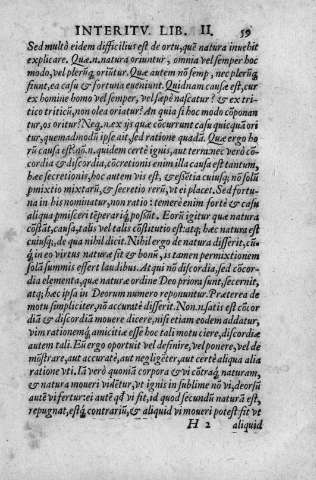 INTERITV. LIB. II. 59
Sed multò eidem difficilius est de ortu, quē natura inuehit
explicare. Quæ.n.natura oriuntur, omnia vel semper hoc
modo, vel plerunq; oriūtur. Quæ autem nō semp, nec plerūq;
fiunt, ea casu & fortuna eueniunt. Quidnam causæ est, cur
ex homine homo vel semper, vel sæpè nascatur? & ex tri-
tico triticū, non olea oriatur? An quia si hoc modo cōponan
tur, os oritur? Neq.n.ex ijs quæ cōcurrunt casu quicquā ori
tur, quemadmodū ipse ait, sed ratione quadā. Quæ ergo ho
rū causa est? nō.n.quidem certè ignis, aut terra: nec verò cō-
cordia & discordia, cōcretionis enim illa causa est tantum,
hæc secretionis, hoc autem vis est, & essētia cuiusq; nō solū
pmixtio mixtarū, & secretio rerū, vt ei placet. Sed fortu-
na in his nominatur, non ratio: temerè enim forte & casu
aliqua pmisceri tēperariq; possūt. Eorū igitur quæ natura
cōstāt, causa, talis vel talis cōstitutio est: atq; hæc natura est
cuiusq; de qua nihil dicit. Nihil ergo de natura disserit, cū-
q; in eo virtus naturæ sit & bonū, is tamen permixtionem
solā summis effert laudibus. Atqui nō discordia, sed cōcor-
dia elementa, quæ naturæ ordine Deo priora sunt, secernit,
atq; hæc ipsa in Deorum numero reponuntur. Præterea de
motu simpliciter, nō accuratè disserit. Non.n.satis est cōcor
diā & discordiā mouere dicere, nisi etiam eodem addatur,
vim rationemq; amicitiæ esse hoc tali motu ciere, discordiæ
autem tali. Eū ergo oportuit vel definire, vel ponere, vel de
mōstrare, aut accuratè, aut negligēter, aut certè aliqua alia
ratione vti. Ia verò quoniā corpora & vi cōtraq; naturam,
& natura moueri vidētur, vt ignis in sublime nō vi, deorsū
autē vi fertur: ei autē qd vi fit, id quod secundū naturā est,
repugnat, estq; contrariū, & aliquid vi moueri potest fit vt
H 2 aliquid